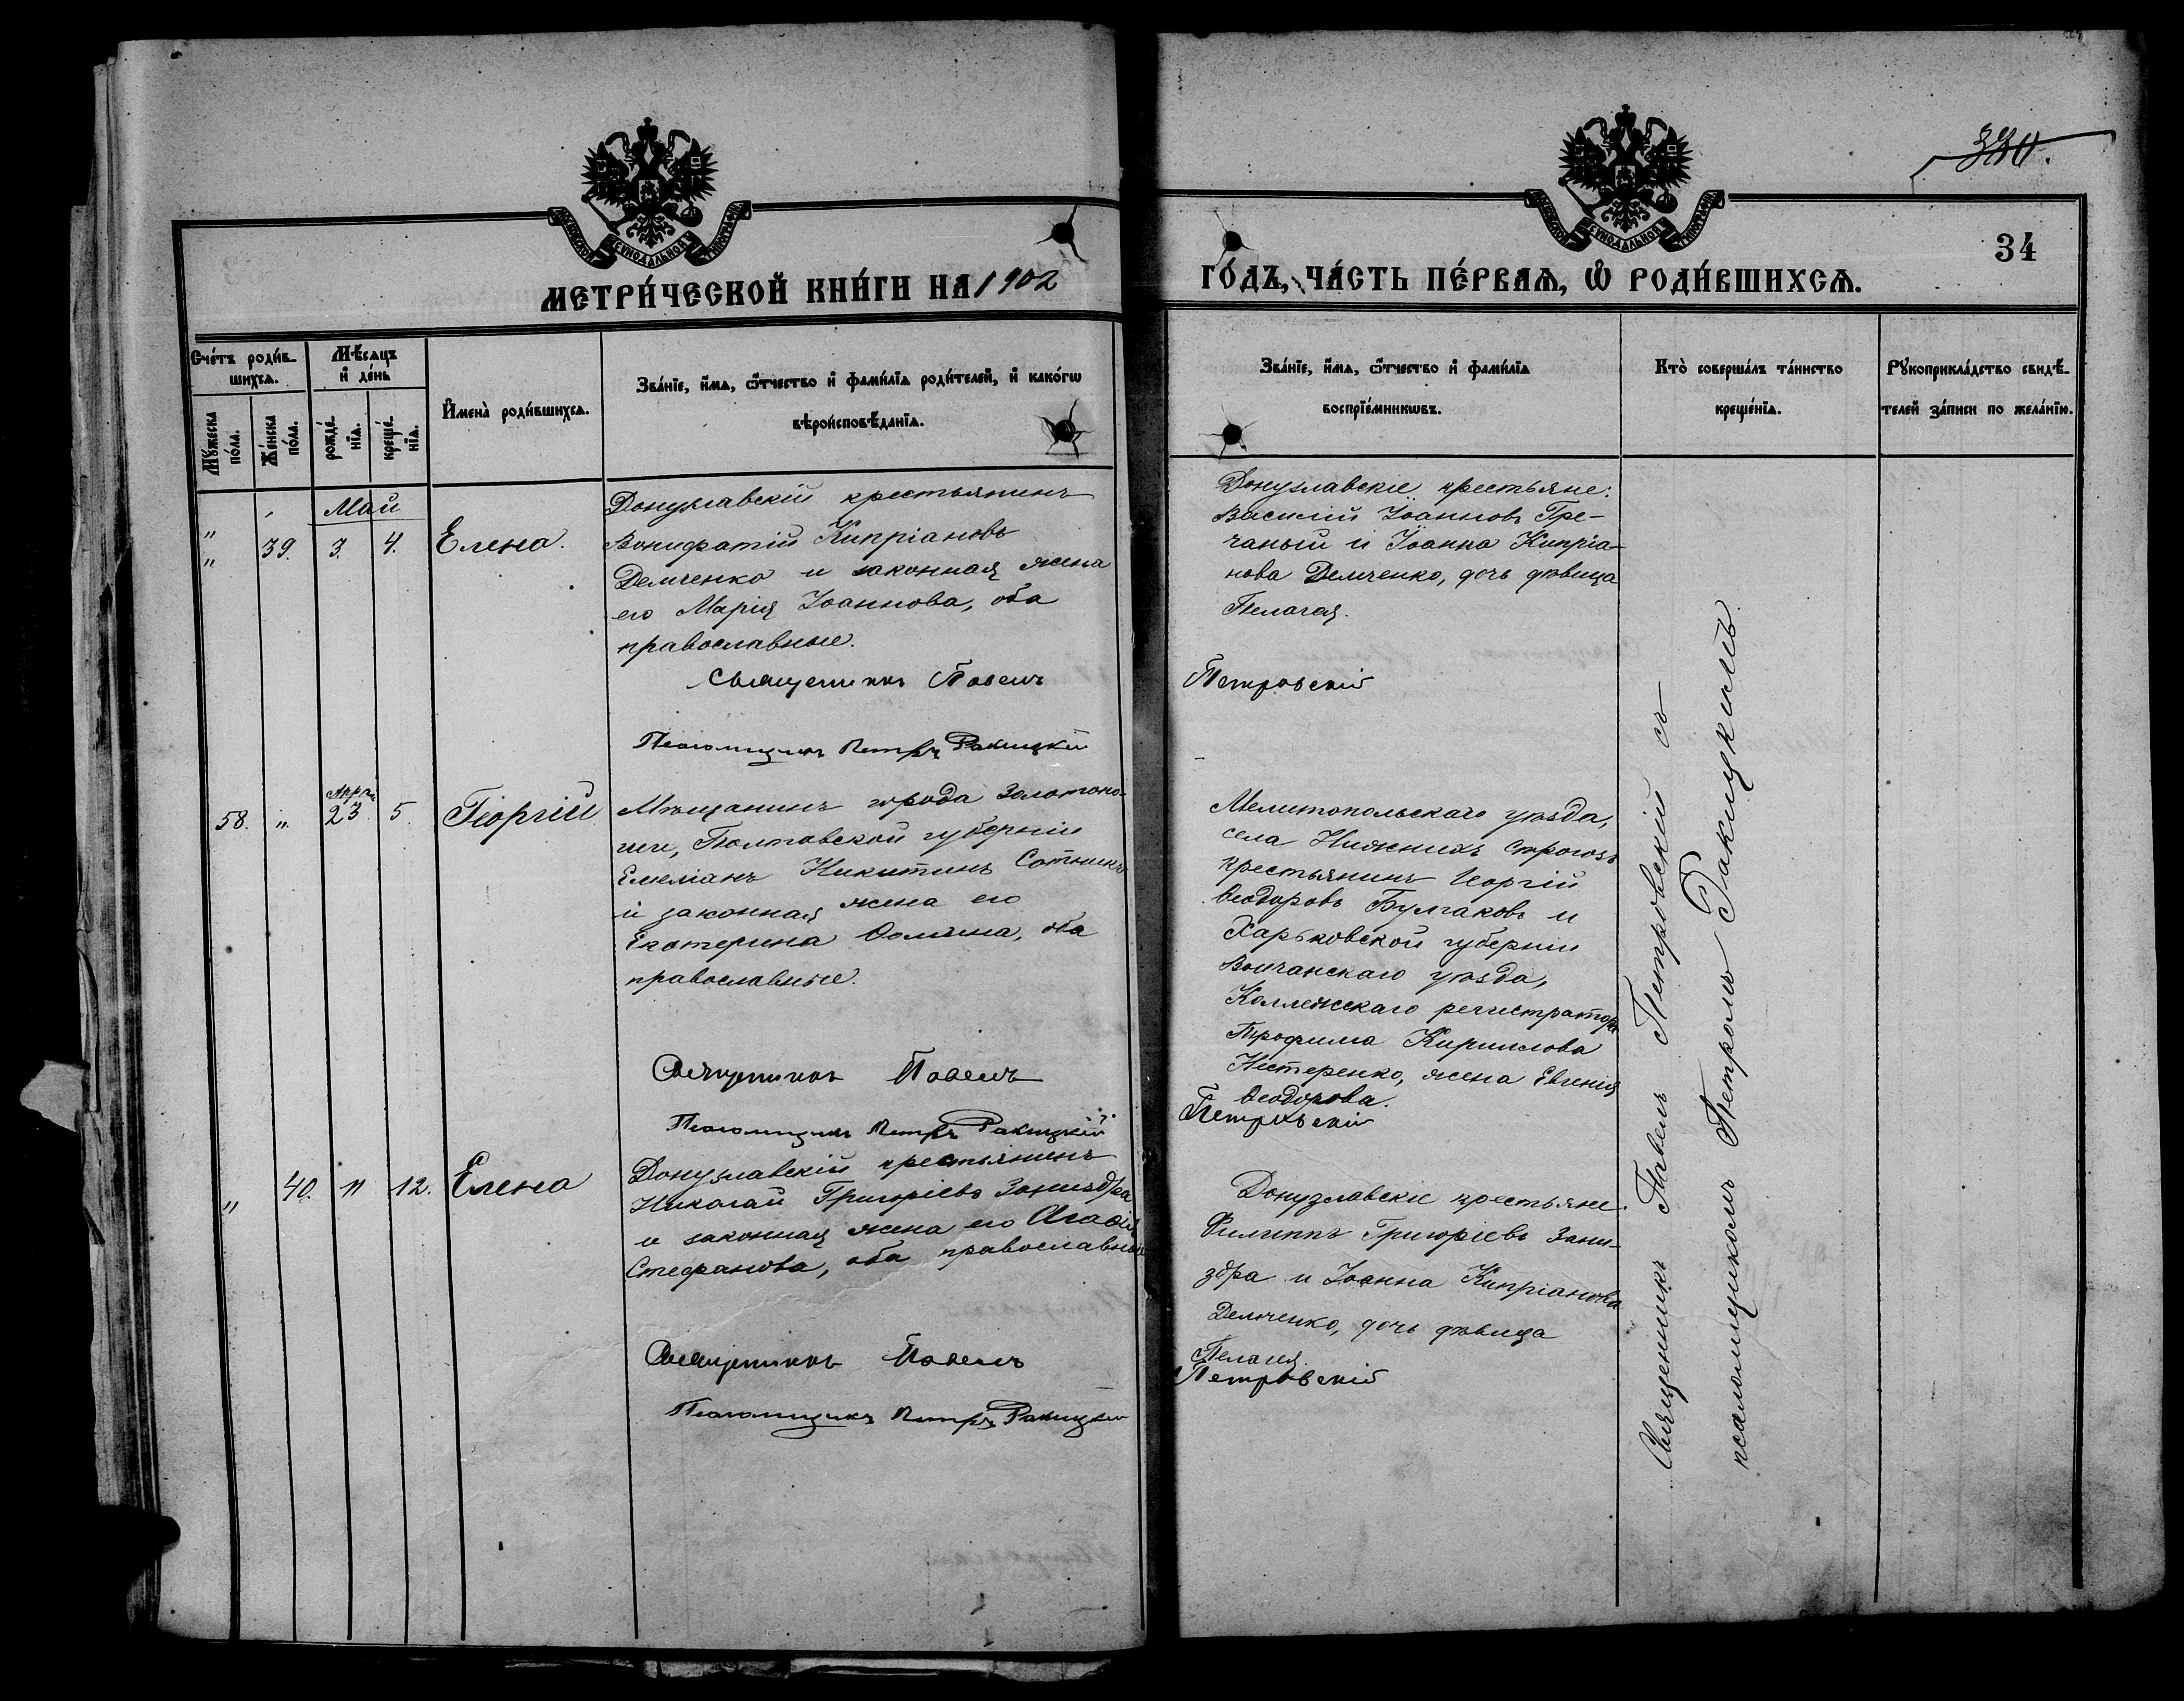 330.
34
МОСКОВСКОЙ СѴНОДАЛЬНОЙ ТИПОГРАФІИ
МОСКОВСКОЙ СѴНОДАЛЬНОЙ ТИПОГРАФІИ
МЕТРИ́ЧЕСКОЙ КНИ́ГИ НА 1902
ГО́ДЪ, ЧА́СТЬ ПЕ́РВАѦ, Ѽ РОДИ́ВШИХСѦ.
Сче́тъ роди́в-
шихсѧ.
Мꙋ́жеска
по́ла.
Же́нска
по́ла.
Мѣ́сѧцъ
и҆ де́нь
рожде́-
нїѧ.
креще́-
нїѧ.
И҆мена̀ роди́вшихсѧ.
Зва́нїе, и҆́мѧ, ѻ҆́тчество и҆ фами́лїѧ роди́телей, и҆ како́гѡ
вѣроисповѣ́данїѧ.
Зва́нїе, и҆́мѧ, ѻ҆́тчество и҆ фами́лїѧ
воспрїе́мникѡвъ.
Кто̀ соверша́лъ та́инство
креще́нїѧ.
Рꙋкоприкла́дство свидѣ́-
телей за́писи по жела́нїю.
Май
" 39. 3. 4. Елена.
Донузлавскій крестьянинъ
Вонифатій Кипріановъ
Демченко и законная жена
его Марія Іоаннова, оба
православные.
Священникъ Павелъ
Псаломщикъ Петръ Ракицкій
Донузлавскіе крестьяне:
Василій Іоанновъ Гре-
чаный и Іоанна Кипріа-
нова Демченко, дочь дѣвица
Пелагея.
Петровскій
58. " Апрѣл 23. 5. Георгій
Мѣщанинъ города Золотоно-
ши, Полтавской губерніи
Емеліанъ Никитинъ Сотникъ
и законная жена его
Екатерина Ѳомина, оба
православные.
Священникъ Павелъ
Псаломщикъ Петръ Ракицкій
Мелитопольскаго уѣзда,
села Нижнихъ Строгозъ
крестьянинъ Георгій
Ѳеодоровъ Булгаковъ и
Харьковской губерніи
Волчанскаго уѣзда,
Коллежскаго регистратора
Трофима Кириллова
Нестеренко, жена Евгенія
Ѳеодорова.
Петровскій
" 40. 11 12. Елена
Донузлавскій крестьянинъ
Николай Григоріевъ Заниздра
и законная жена его Агаѳія
Стефанова, оба православные
Священникъ Павелъ
Псаломщикъ Петръ Ракицкій
Донузлавскіе крестьяне:
Филиппъ Григоріевъ Зани-
здра и Іоанна Кипріанова
Демченко, дочь дѣвица
Пелагія.
Петровскій
Священникъ Павелъ Петровскій съ
псаломщикомъ Петромъ Ракицкимъ.